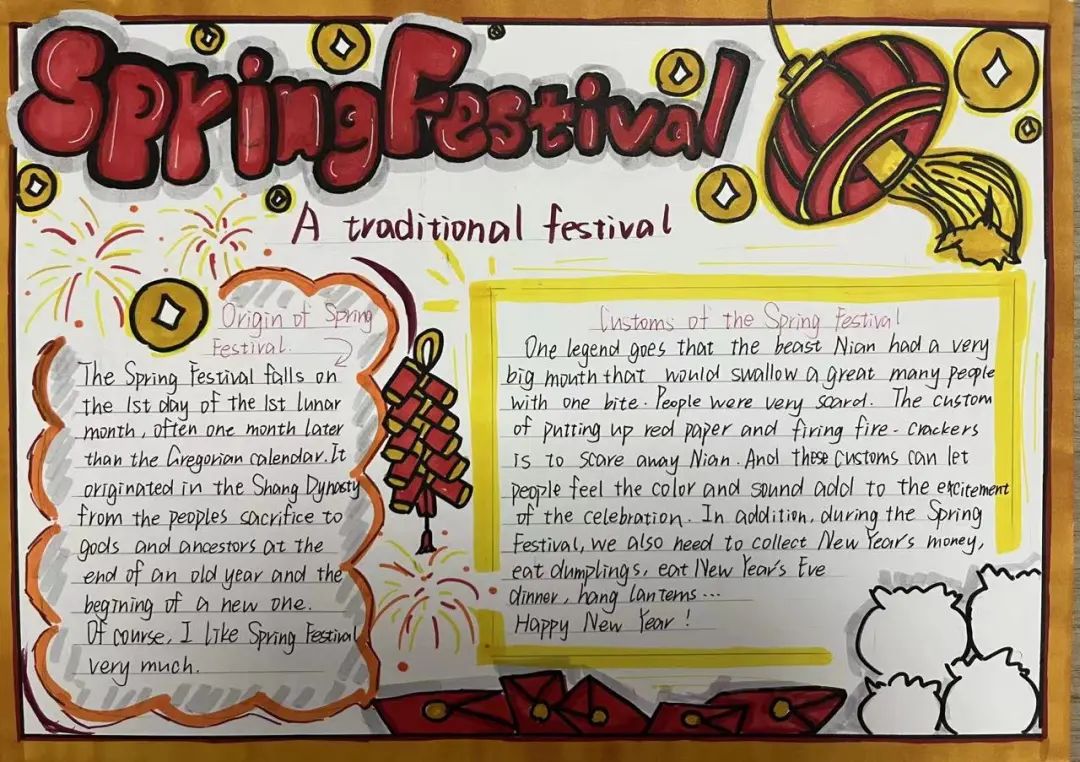 Spring Festival
A traditional festival
Origin of Spring
Festival.
The Spring Festival falls on
the 1st day of the 1st lunar
month, often one month later
than the Gregorian calendar. It
originated in the Shang Dynasty
from the peoples sacrifice to
gods and ancestors at the
end of an old year and the
begining of a new one.
Of course, I like Spring Festival
very much.
Customs of the Spring Festival
One legend goes that the beast Nian had a very
big mouth that would swallow a great many people
with one bite. People were very scared. The custom
of putting up red paper and firing fire-crackers
is to scare away Nian. And these customs can let
people feel the color and sound add to the excitement
of the celebration. In addition, during the Spring
Festival, we also need to collect New Year's money,
eat dumplings, eat New Year's Eve
dinner, hang lanterns...
Happy New Year!